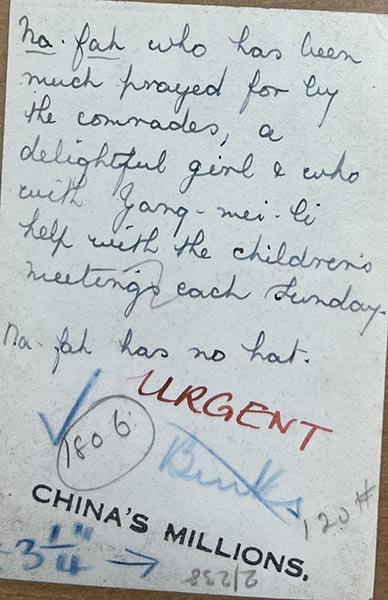 Na-fah who has been
much prayed for by
the comrades, a
delightful girl & who
with Yang-mei-li
help with the children's
meetings each Sunday.
Na-fah has no hat.
URGENT
180 6.
Binks
120#
CHINA'S MILLIONS.
3 1/4" →
2/238